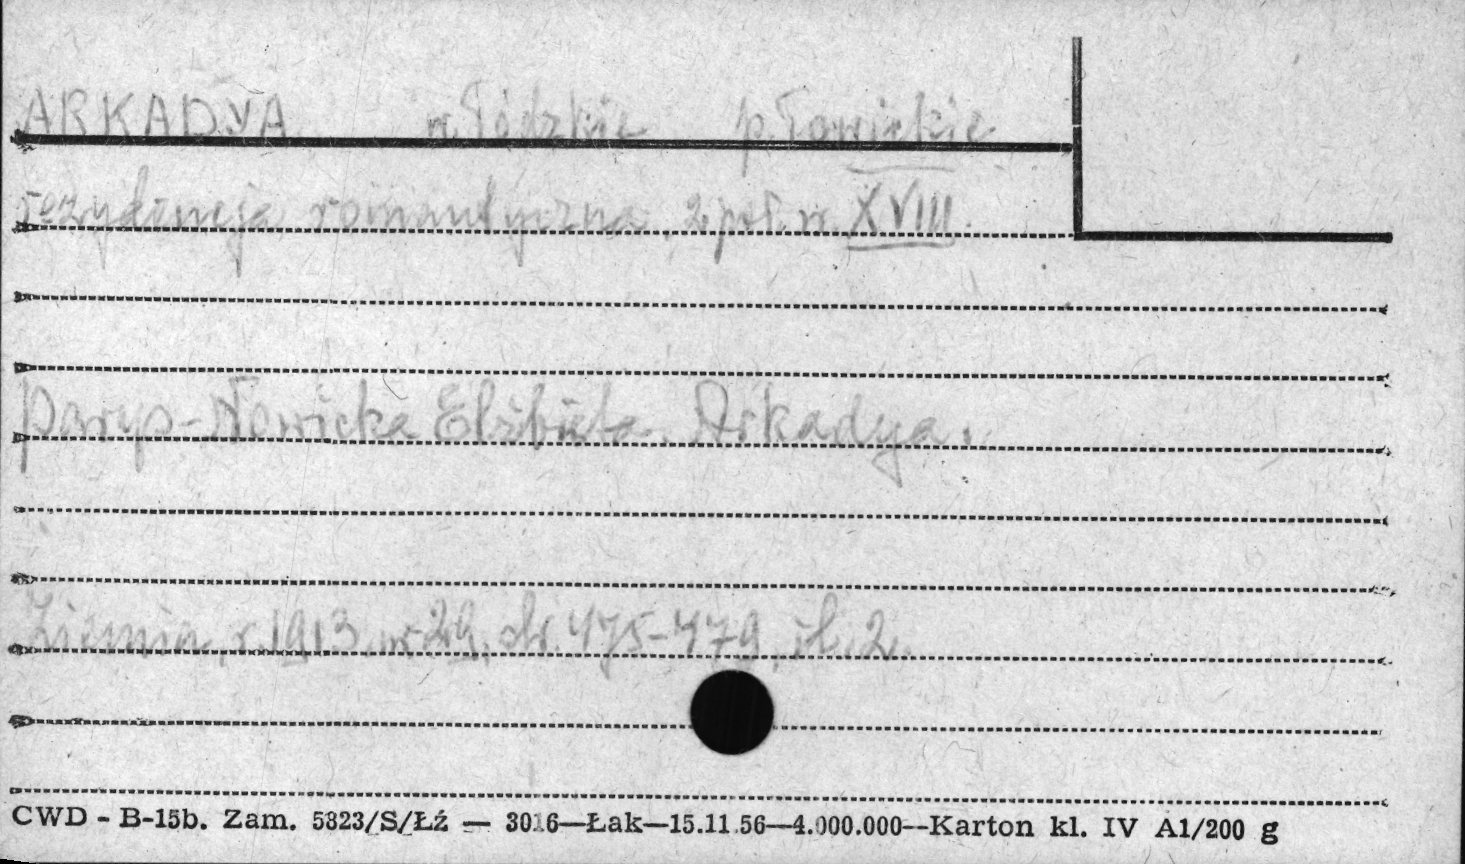 ARKADYA w. łódzkie p. łowickie
rezydencja romantyczna, 2 poł. w. XVIII.
Parys-Nowicka Elżbieta. Arkadya.
Ziemia, r. 1913. nr 29, str. 475-479, il. 2.
CWD - B-15b. Zam. 5823/S/Łź — 3016—Łak—15.11.56—4.000.000—Karton kl. IV A1/200 g